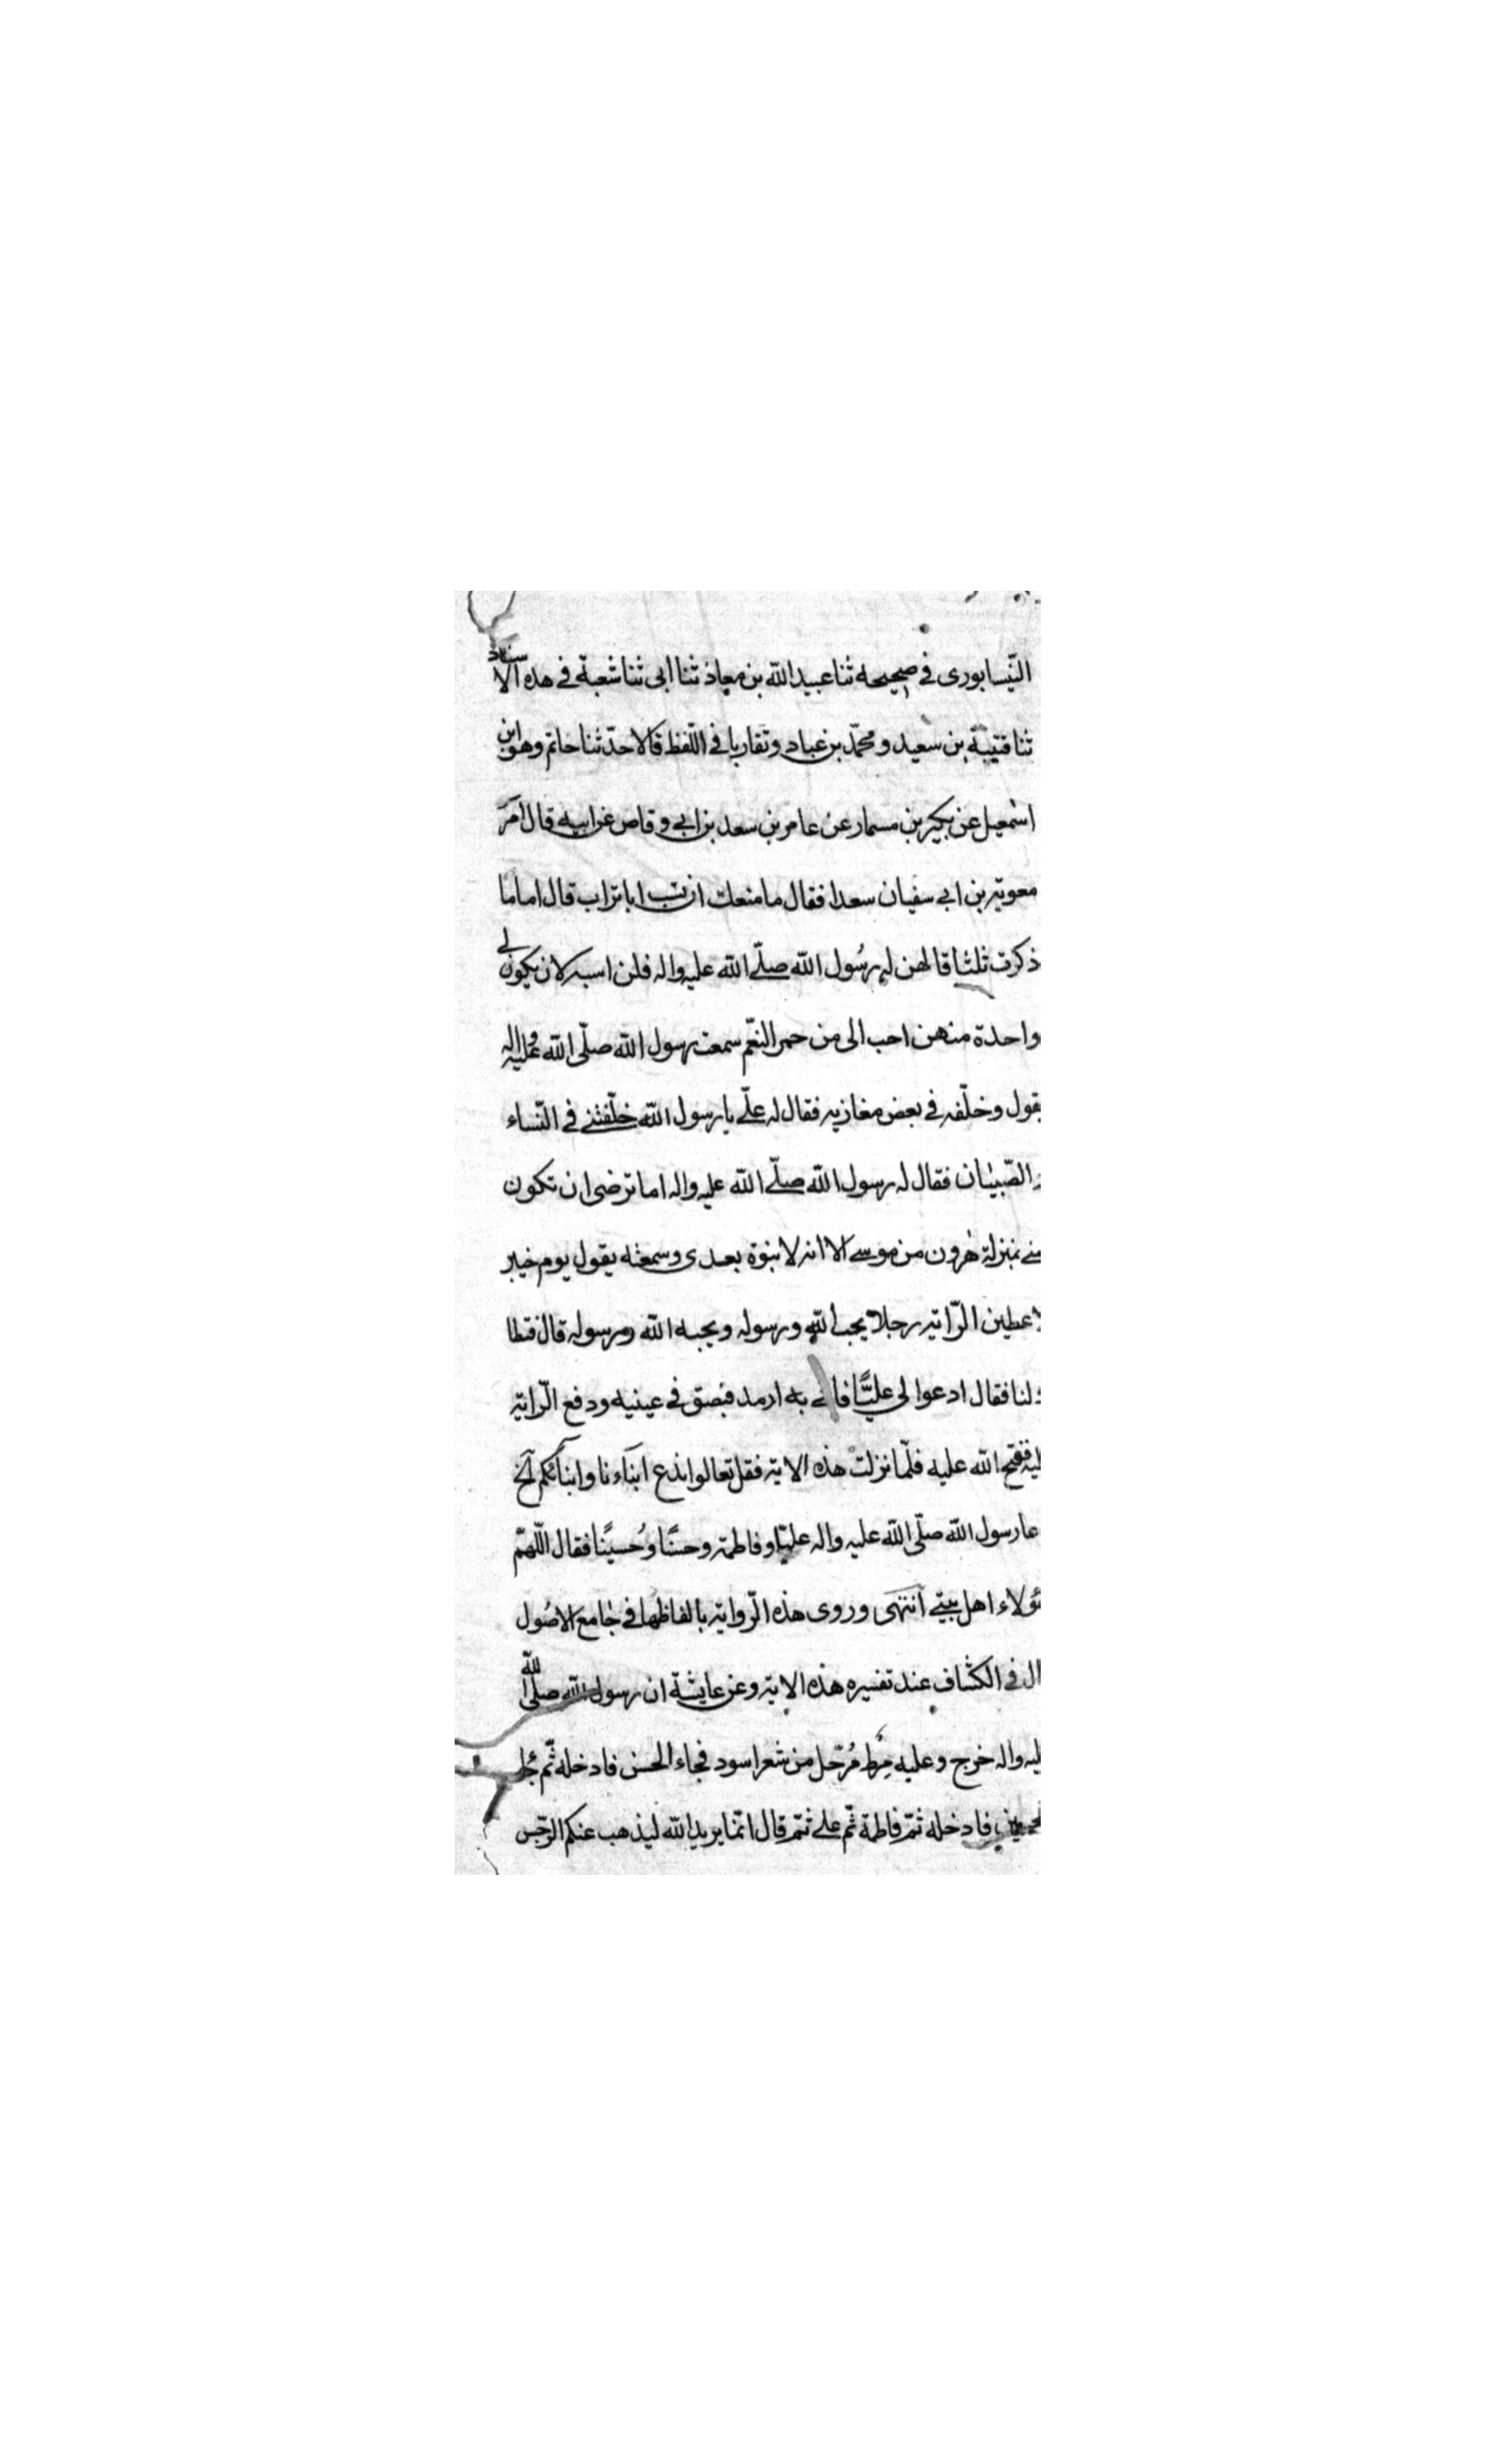 النّيسابورى فى صحيحه ثنا عبيد الله بن معاذ ثنا ابى ثنا شعبة فى هذه الاسناد
ثنا قتيبة بن سعيد و محمّد بن عباد وتقاربا فى اللّفظ قالا حدّثنا حاتم وهو ابن
اسمٰعيل عن بكير بن مسمار عن عامر بن سعد بن ابى وقاص عن ابيه قال امَرَ
معوية بن ابى سفيان سعدا فقال ما منعك ان تسب ابا تراب قال اما ما
ذكرت ثلثا قالهن له رسُول الله صلّى الله عليه واله فلن اسبه لان يكون لى
واحدة منهن احب الى من حمر النعّم سمعت رسول الله صلّى الله عليه واله
يقول وخلّفه فى بعض مغازيه فقال له علّى يا رسول الله خلّفتنى فى النّساء
و الصّبيٰان فقال له رسول الله صلّى الله عليه واله اما ترضى ان تكون
منى بمنزلة هٰرون من موسى الا انه لا نبوة بعدى وسمعته يقول يوم خيبر
لاعطين الرّاية رجلا يحب الله ورسوله ويحبه الله ورسوله قال فتطا
ولنا فقال ادعوا لى عليًّا فاتى به ارمد فبصق فى عينيه ودفع الرّاية
ليه ففتح الله عليه فلّما نزلت هذه الاية فقل تعالوا ندع ابنَاءنا وابنَآئكم آلخ
عا رسول الله صلّى الله عليه واله عليّا وفاطمة وحسنًا وحُسينًا فقال اللّهمّ
ؤلاء اهل بيتى انتهى وروى هذه الرّواية بالفاظها فى جٰامع الاصُول
ال فى الكشّاف عند تفسيره هذه الاية وعن عايشة ان رسول الله صلّى الله
ليه واله خرج وعليه مِرط مُرَحّل من شعر اسود فجاء الحسن فادخله ثمّ جا
لحسين فادخله ثمّ فاطمة ثمّ على ثمّ قال انّما يريد الله ليذهب عنكم الرّجس